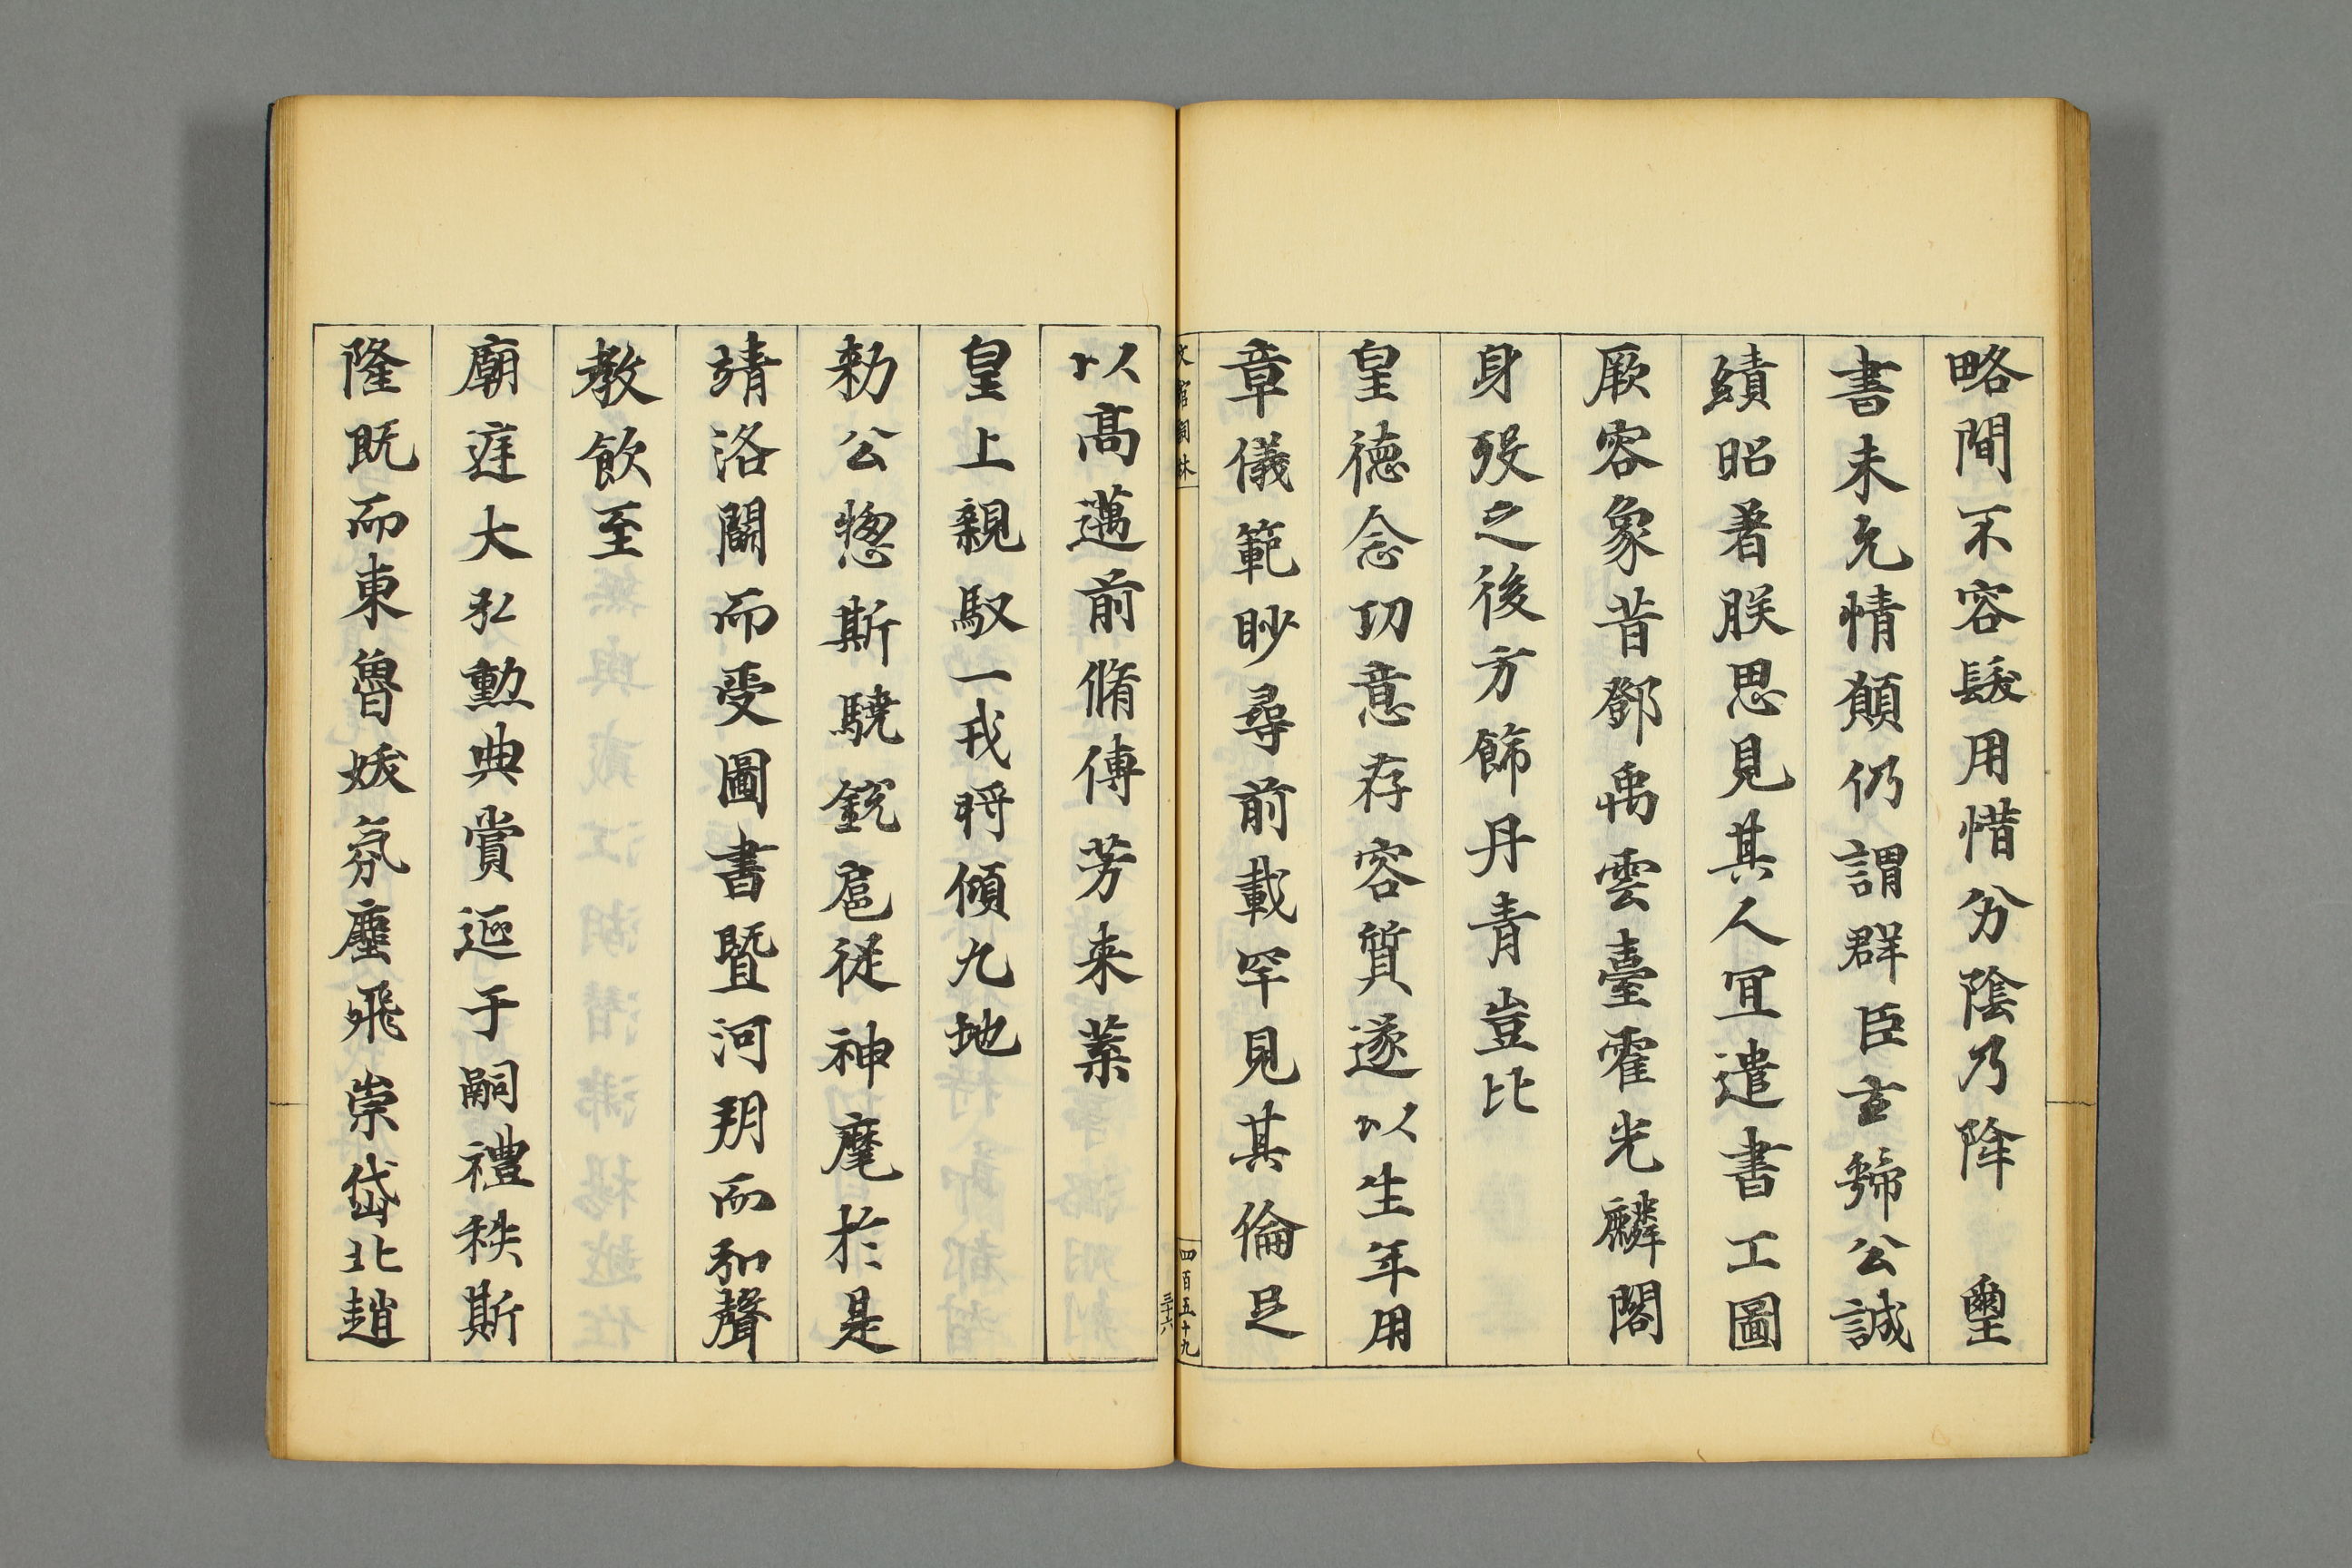 略間不容髮用惜分陰乃降 璽
書未允情願仍謂群臣玄錫公誠
績昭著朕思見其人宜遣書工圖
厥容象昔鄧禹雲臺霍光麟閣
身歿之後方飾丹青豈比
皇德念功意存容質遂以生年用
章儀範眇尋前載罕見其倫足
文館詞林
四百五十九
三十六
以高邁前脩傳芳来葉
皇上親馭一戎將傾九地
勑公惣斯驍銳扈從神麾於是
靖洛闕而受圖書暨河朔而和聲
教飲至
廟庭大弘勳典賞延于嗣禮秩斯
隆既而東魯妖氛塵飛崇岱北趙